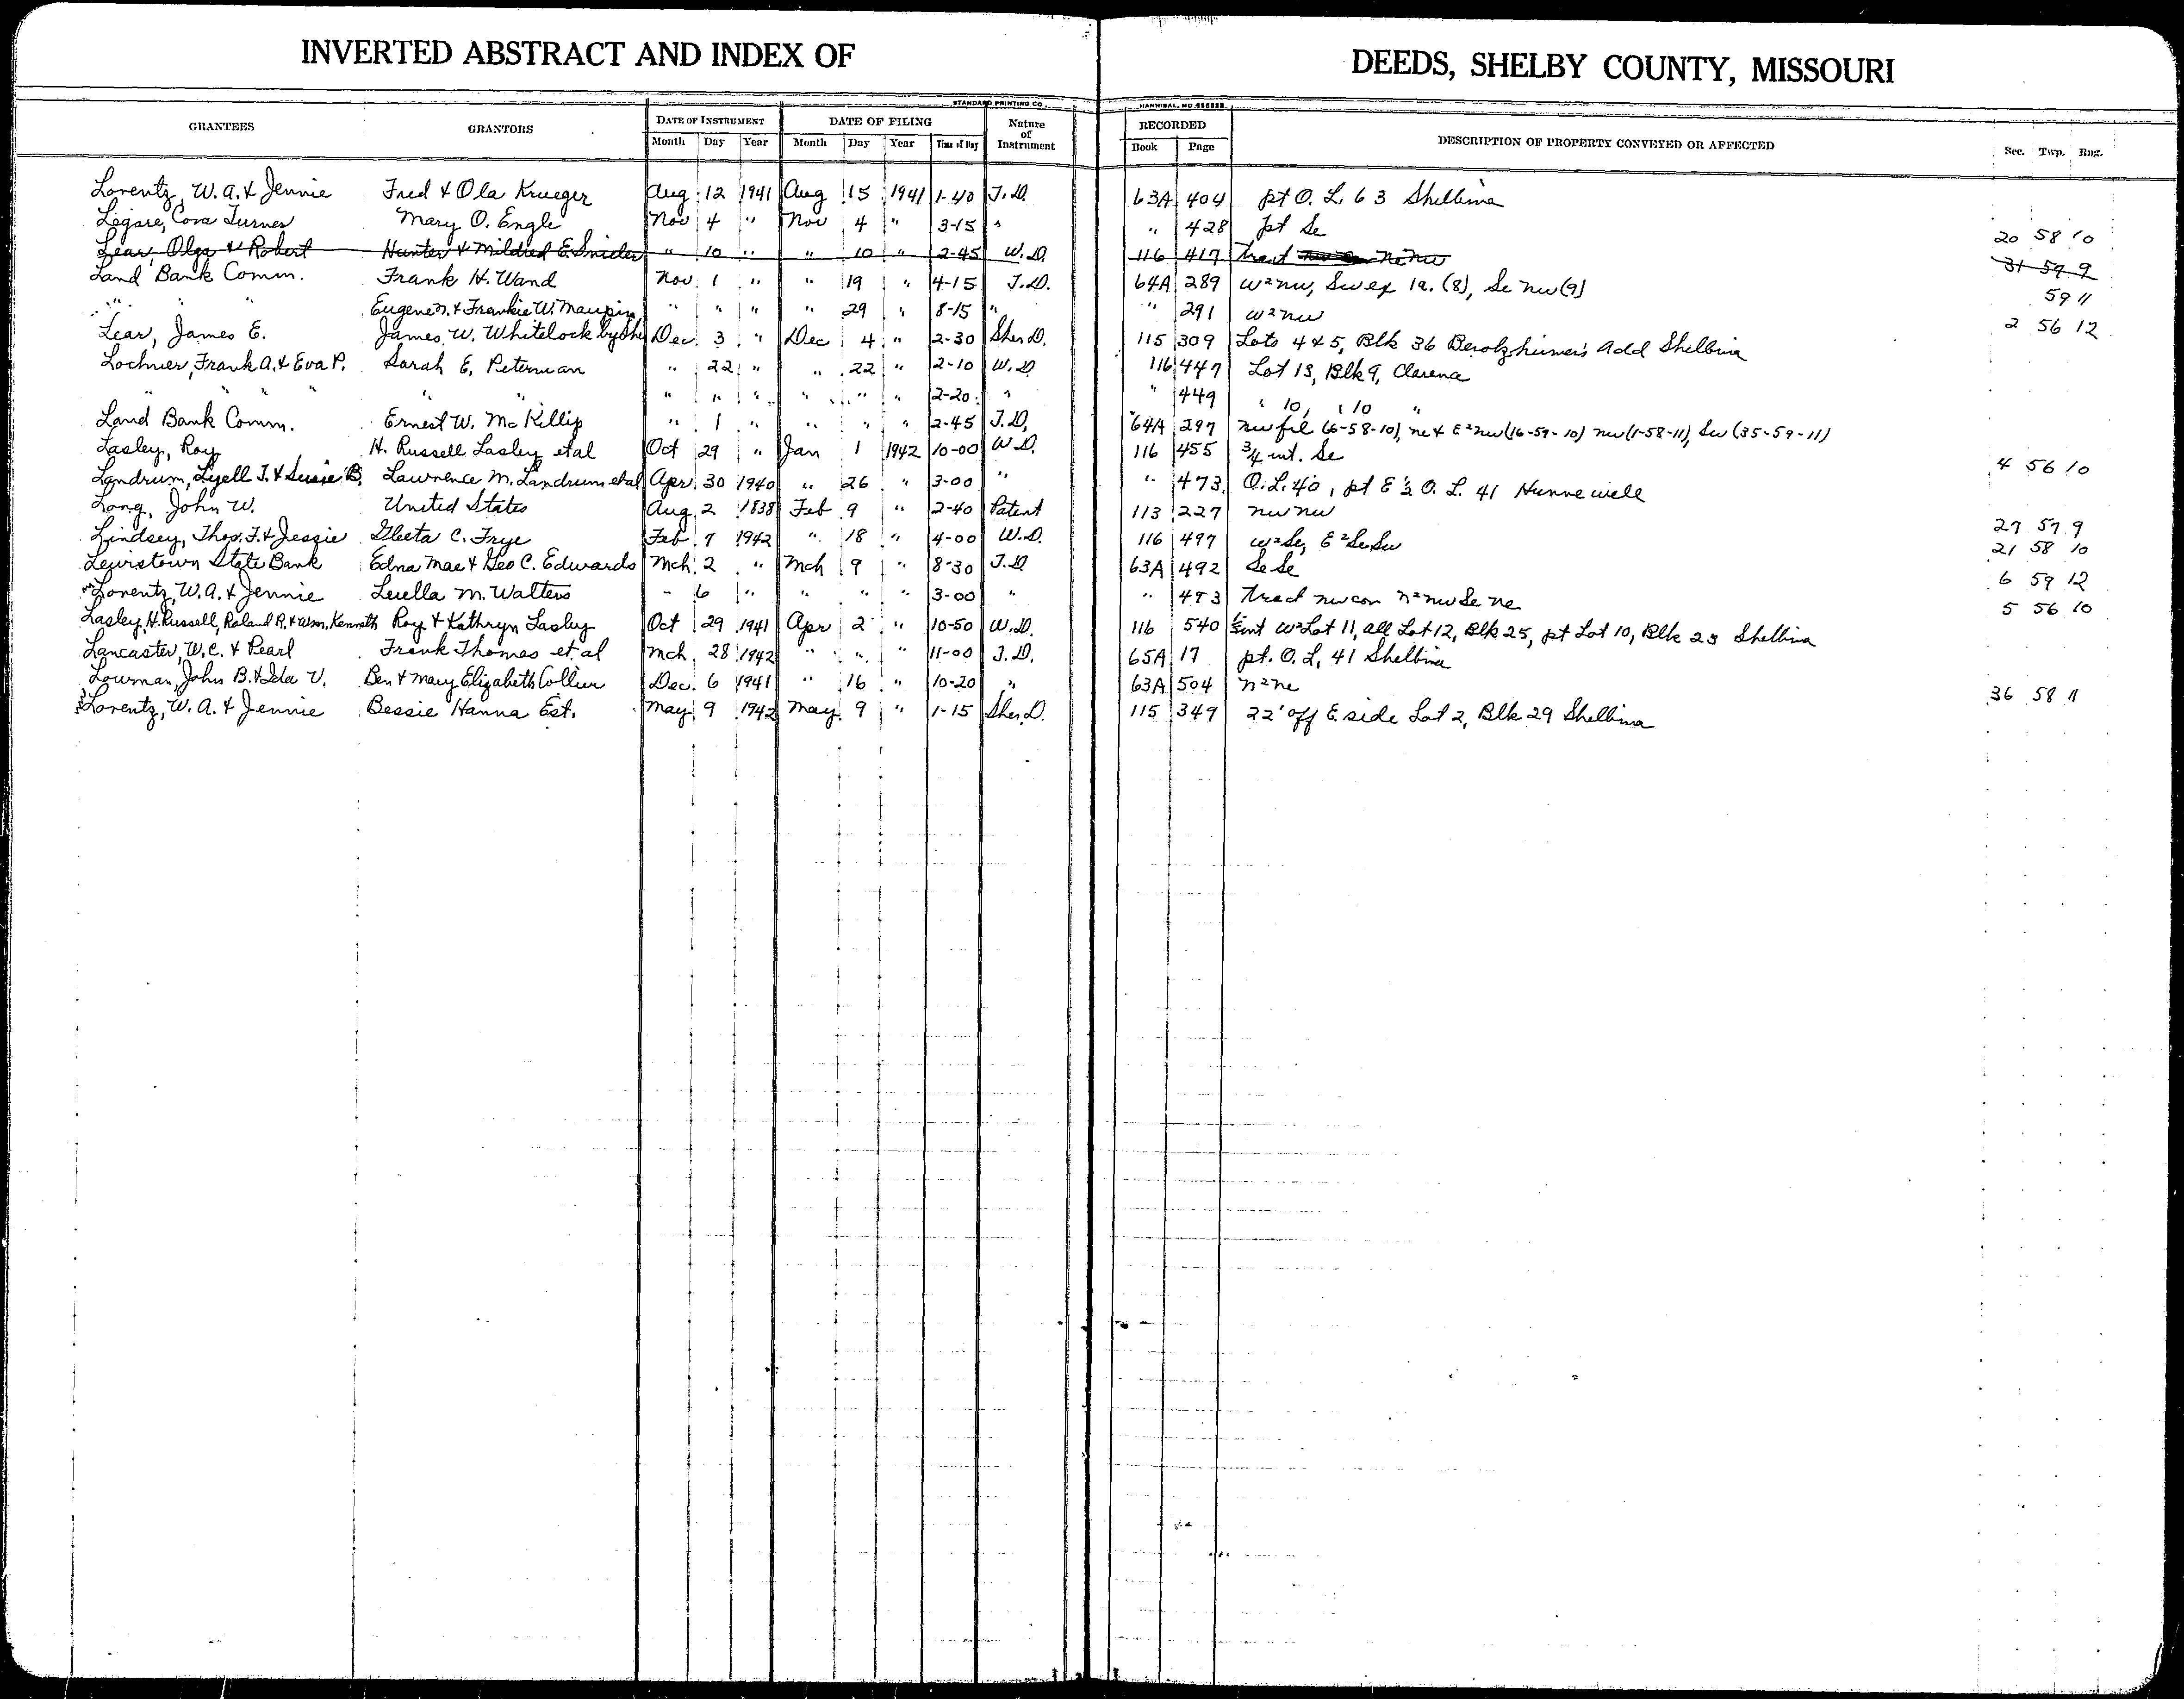 INVERTED ABSTRACT AND INDEX OF DEEDS, SHELBY COUNTY, MISSOURI
STANDARD PRINTING CO. HANNIBAL, MO
GRANTEES GRANTORS DATE OF INSTRUMENT DATE OF FILING Nature of Instrument RECORDED DESCRIPTION OF PROPERTY CONVEYED OR AFFECTED Sec. Twp. Rng.
Month Day Year Month Day Year Time of Day Book Page
Lorentz, W. A. & Jennie Fred & Ola Krueger Aug 12 1941 Aug 15 1941 1-40 T.D. 63A 404 pt O. L. 63 Shelbina
Legare, Cora Turner Mary O. Engle Nov 4 " Nov 4 " 3-15 " " 428 pt Se 20 58 10
Lear, Olga & Robert Hunter & Mildred E. Snider " 10 " " 10 " 2-45 W.D. 116 417 tract ne nw 31 59 9
Land Bank Comm. Frank H. Wand Nov 1 " " 19 " 4-15 T.D. 64A 289 W²nw, Sw ex 1a. (8), Se nw (9) 59 11
" " " Eugene N. & Frankie W. Maupin " " " " 29 " 8-15 " " 291 W²nw 2 56 12
Lear, James E. James W. Whitelock by She Dec 3 " Dec 4 " 2-30 Sher D. 115 309 Lots 4 & 5, Blk 36 Berolzheimer's Add Shelbina
Lochner, Frank A. & Eva P. Sarah E. Peterman " 22 " " 22 " 2-10 W.D. 116 447 Lot 13, Blk 9, Clarence
" " " " " " " " " " 2-20 " " 449 " 10, " 10 "
Land Bank Comm. Ernest W. McKillip " 1 " " " " 2-45 T.D. 64A 297 nw frl (6-58-10), ne & E²nw (16-59-10) nw (1-58-11), Sw (35-59-11)
Lasley, Roy H. Russell Lasley etal Oct 29 " Jan 1 1942 10-00 W.D. 116 455 3/4 int. Se 4 56 10
Landrum, Lyell T. & Susie B. Lawrence M. Landrum etal Apr. 30 1940 " 26 " 3-00 " " 473 O.L. 40, pt E½ O. L. 41 Hunnewell
Long, John W. United States Aug 2 1838 Feb 9 " 2-40 Patent 113 227 nw nw 27 57 9
Lindsey, Thos. F. & Jessie Gleeta C. Frye Feb 7 1942 " 18 " 4-00 W.D. 116 497 W²Se, E²SeSw 21 58 10
Lewistown State Bank Edna Mae & Geo C. Edwards Mch 2 " Mch 9 " 8-30 T.D. 63A 492 Se Se 6 59 12
Lorentz, W. A. & Jennie Luella M. Walters " 6 " " " " 3-00 " " 493 tract nw cor N²nw Se ne 5 56 10
Lasley, H. Russell, Roland R. & Wm. Kenneth Roy & Kathryn Lasley Oct 29 1941 Apr 2 " 10-50 W.D. 116 540 int W²Lot 11, all Lot 12, Blk 25, pt Lot 10, Blk 23 Shelbina
Lancaster, W. C. & Pearl Frank Thomas et al Mch. 28 1942 " " " 11-00 T.D. 65A 17 pt. O. L, 41 Shelbina
Lowman, John B. & Ida V. Ben & Mary Elizabeth Collier Dec 6 1941 " 16 " 10-20 " 63A 504 N²ne 36 58 11
Lorentz, W. A. & Jennie Bessie Hanna Est. May 9 1942 May 9 " 1-15 Sher. D. 115 349 22' off E. side Lot 2, Blk 29 Shelbina